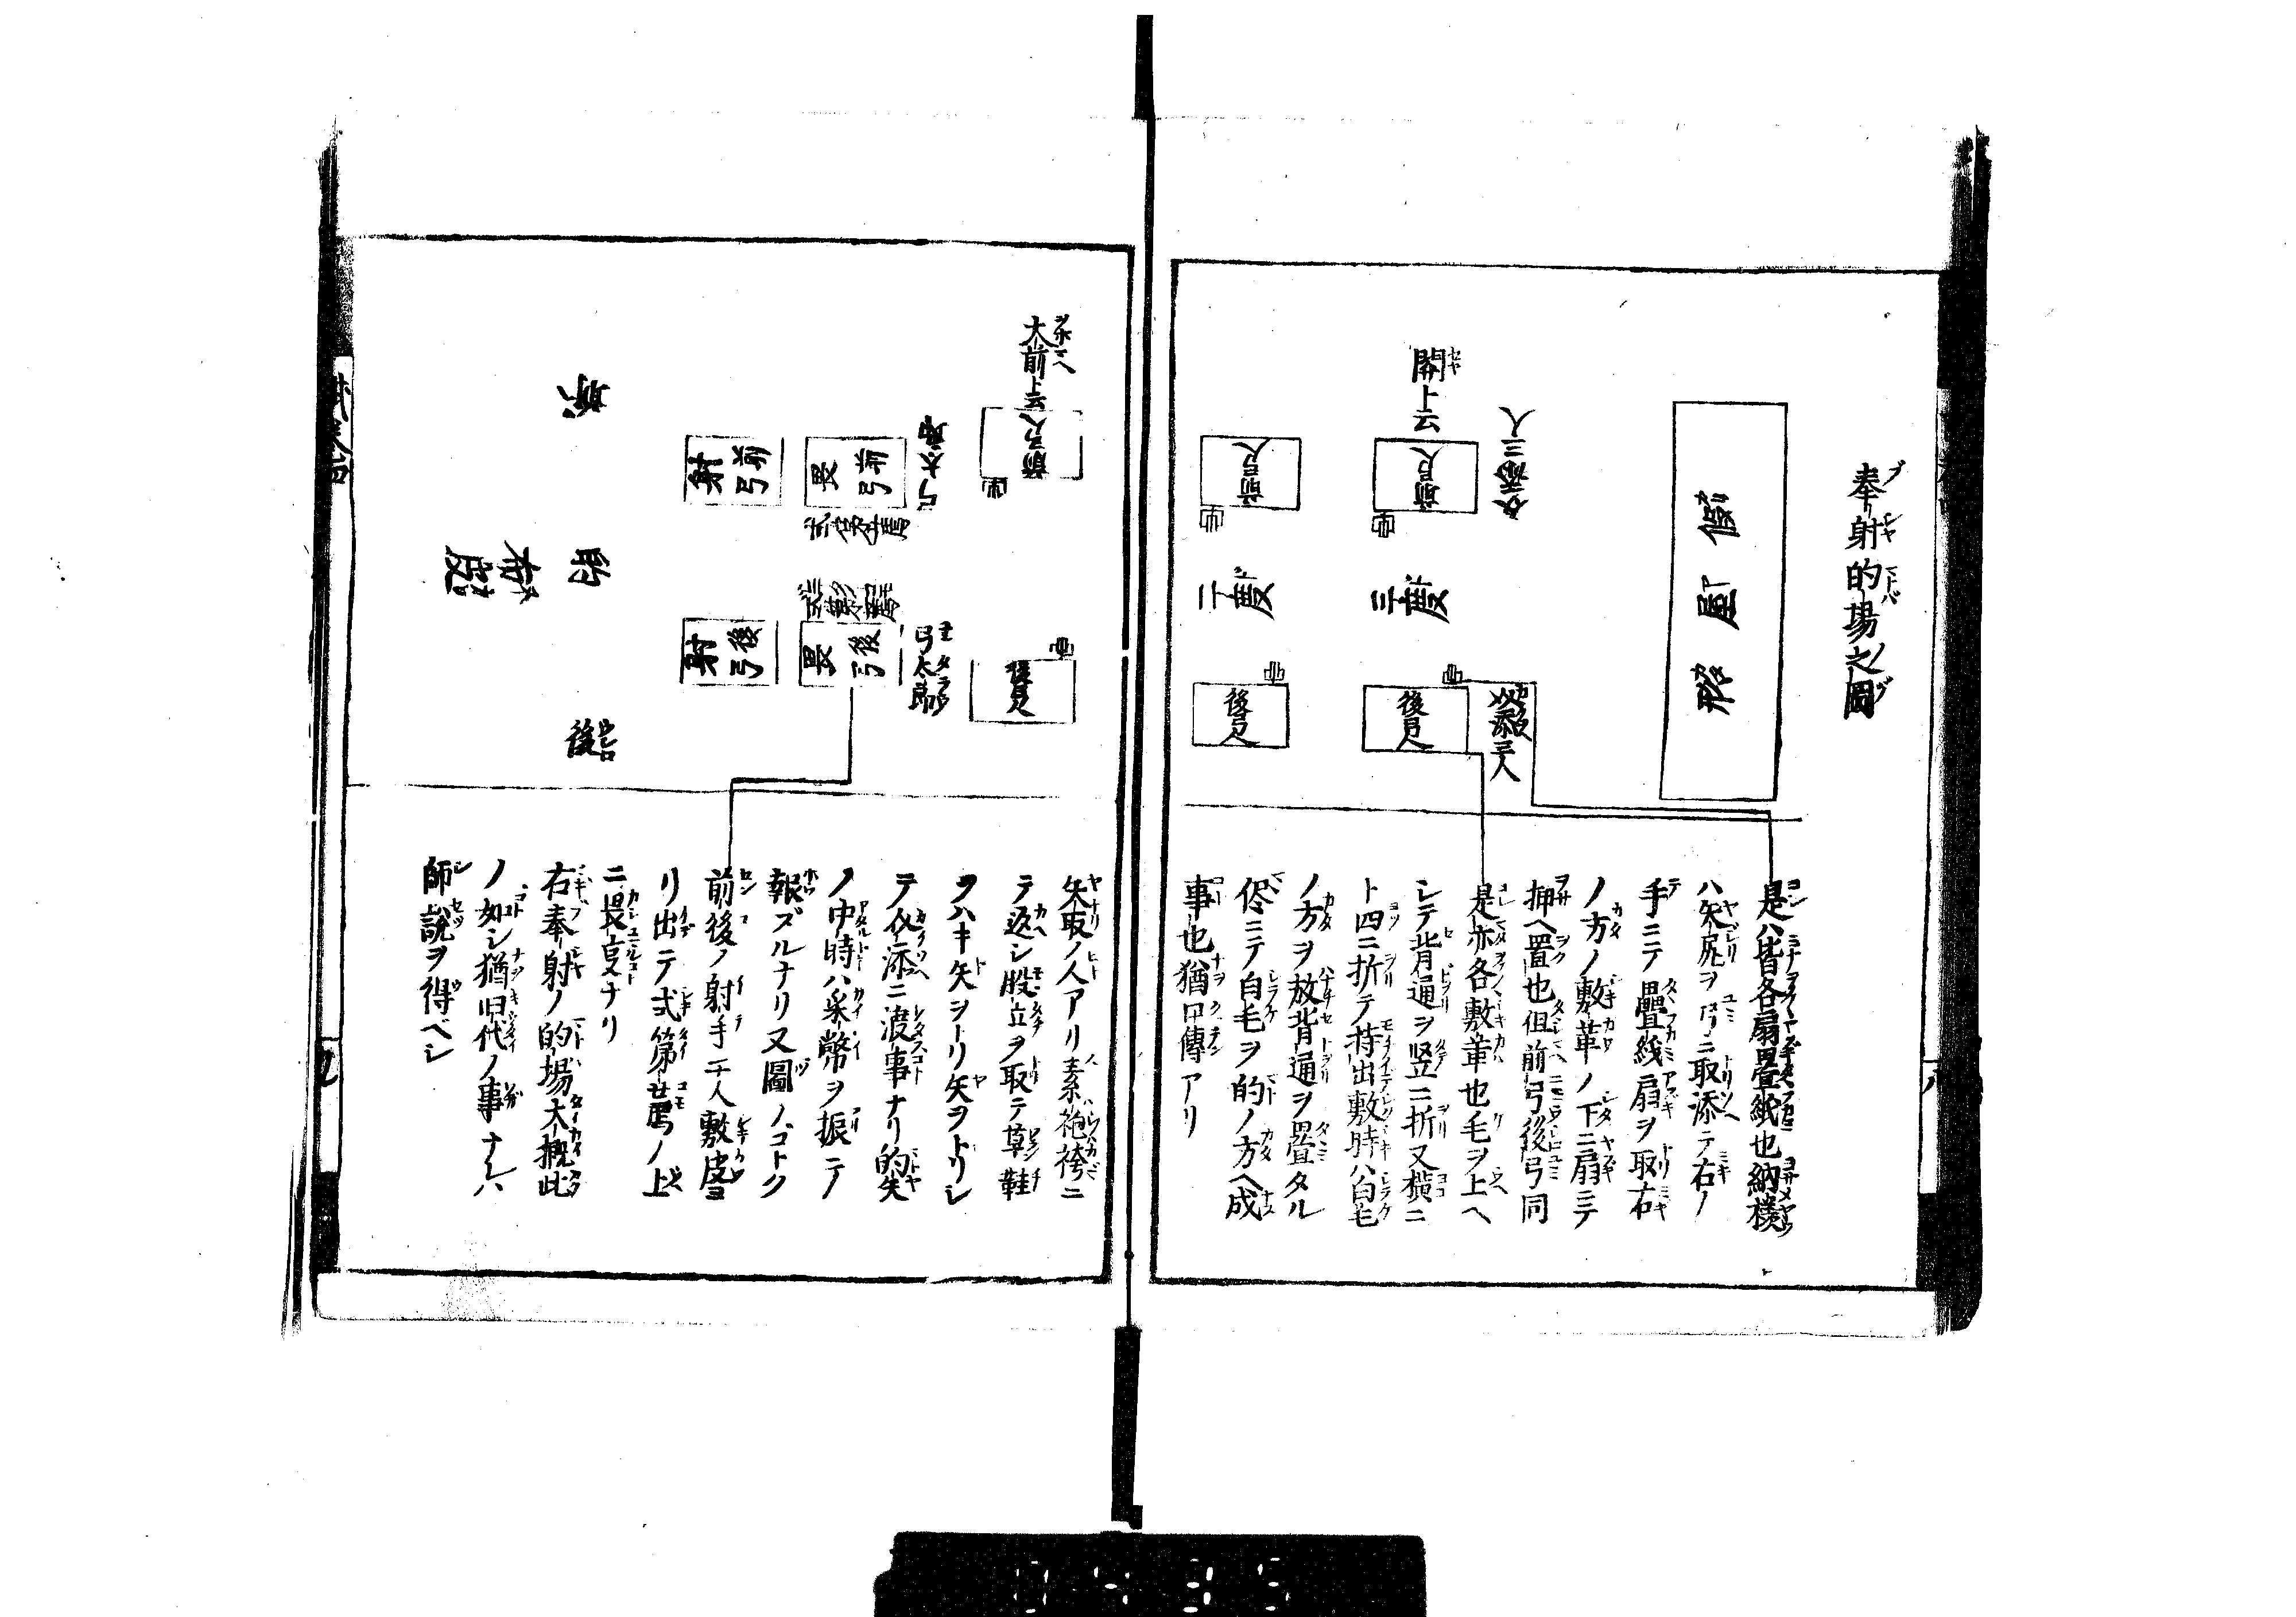 奉射的場之圖
假屋形
関ト云
前弓人
後弓人
三度
前弓人
後弓人
二度
是ハ皆各扇畳紙也納様
ハ矢尻ヲ弓ニ取添テ右ノ
手ニテ疊紙扇ヲ取右
ノ方ノ敷革ノ下ニ扇ニテ
押ヘ置也但前弓後弓同
是亦各敷革也毛ヲ上ヘ
シテ背通ヲ竪ニ折又横ニ
ト四ニ折テ持出敷時ハ白毛
ノ方ヲ放背通ヲ畳タル
侭ニテ白毛ヲ的ノ方ヘ成
事也猶口傳アリ
大前ト云
前弓人
後弓人
弓太郎
弓太郎
前弓畏
後弓畏
前弓射
後弓射
前
的
後
矢取ノ人アリ素袍袴ニ
テ返シ股立ヲ取テ草鞋
ヲハキ矢ヲトリ矢ヲトリシ
テ介添ニ渡事ナリ的矢
ノ中時ハ采幣ヲ振テ
報ズルナリ又圖ノコトク
前後ノ射手二人敷皮ヨ
リ出テ式第廿薦ノ上
ニ畏亘ナリ
右奉射ノ的場大概此
ノ如シ猶旧代ノ事ナレハ
師説ヲ得ベシ